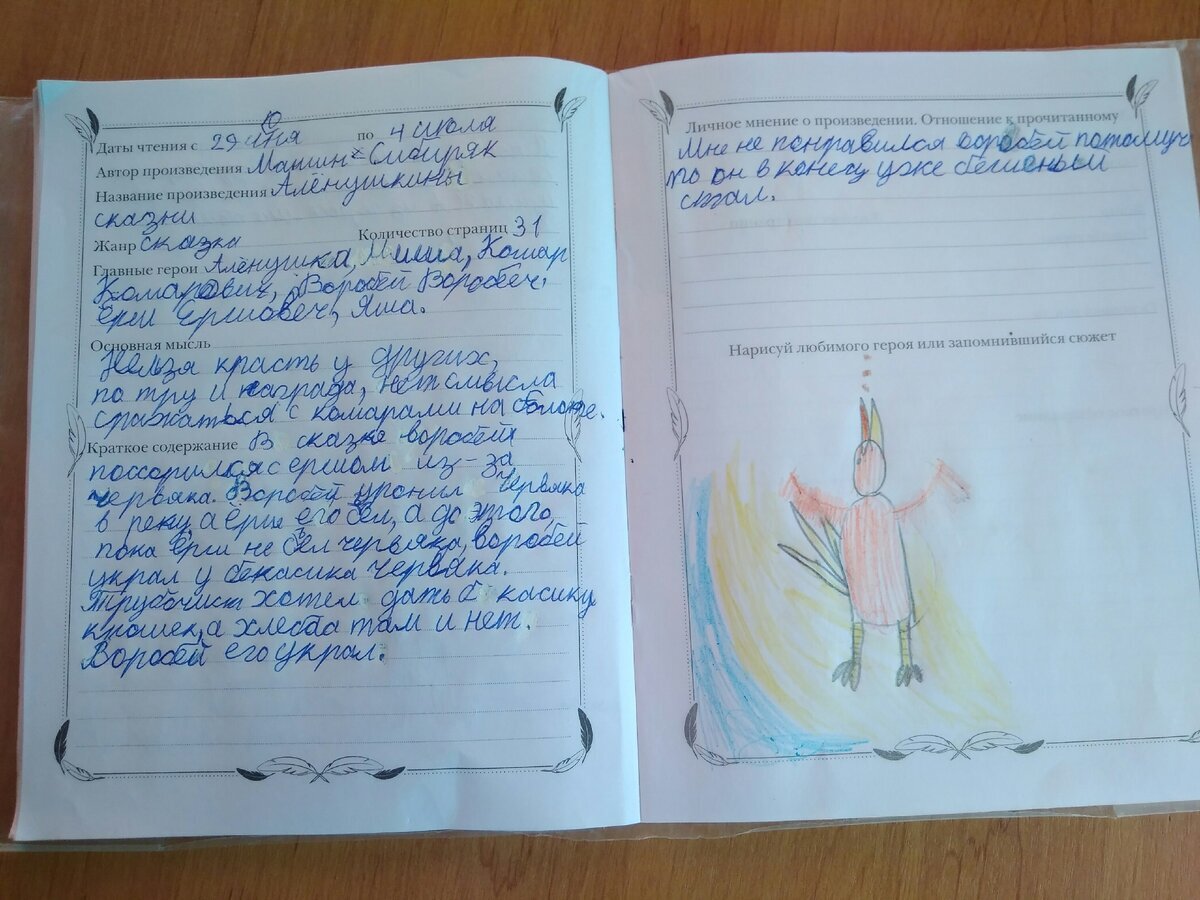 Даты чтения с 29 июня по 4 июля
Автор произведения Мамин-Сибиряк
Название произведения Алёнушкины
сказки
Жанр сказка Количество страниц 31
Главные герои Алёнушка, Миша, Комар
Комарович, Воробей Воробеч.
Ёрш Ершовеч, Яша.
Основная мысль
Нельзя красть у других,
по тру и награда, нет смысла
сражаться с комарами на болоте.
Краткое содержание В сказке воробей
поссорился с ершом из-за
червяка. Воробей уронил червяка
в реку, а ёрш его сьел, а до этого,
пока ёрш не сьел червяка, воробей
украл у бекасика червяка.
Трубочист хотел дать бекасику
крошек, а хлеба там и нет.
Воробей его украл.
Личное мнение о произведении. Отношение к прочитанному
Мне не понравился воробей потомуч
то он в конецу уже бешеный
стал.
Нарисуй любимого героя или запомнившийся сюжет